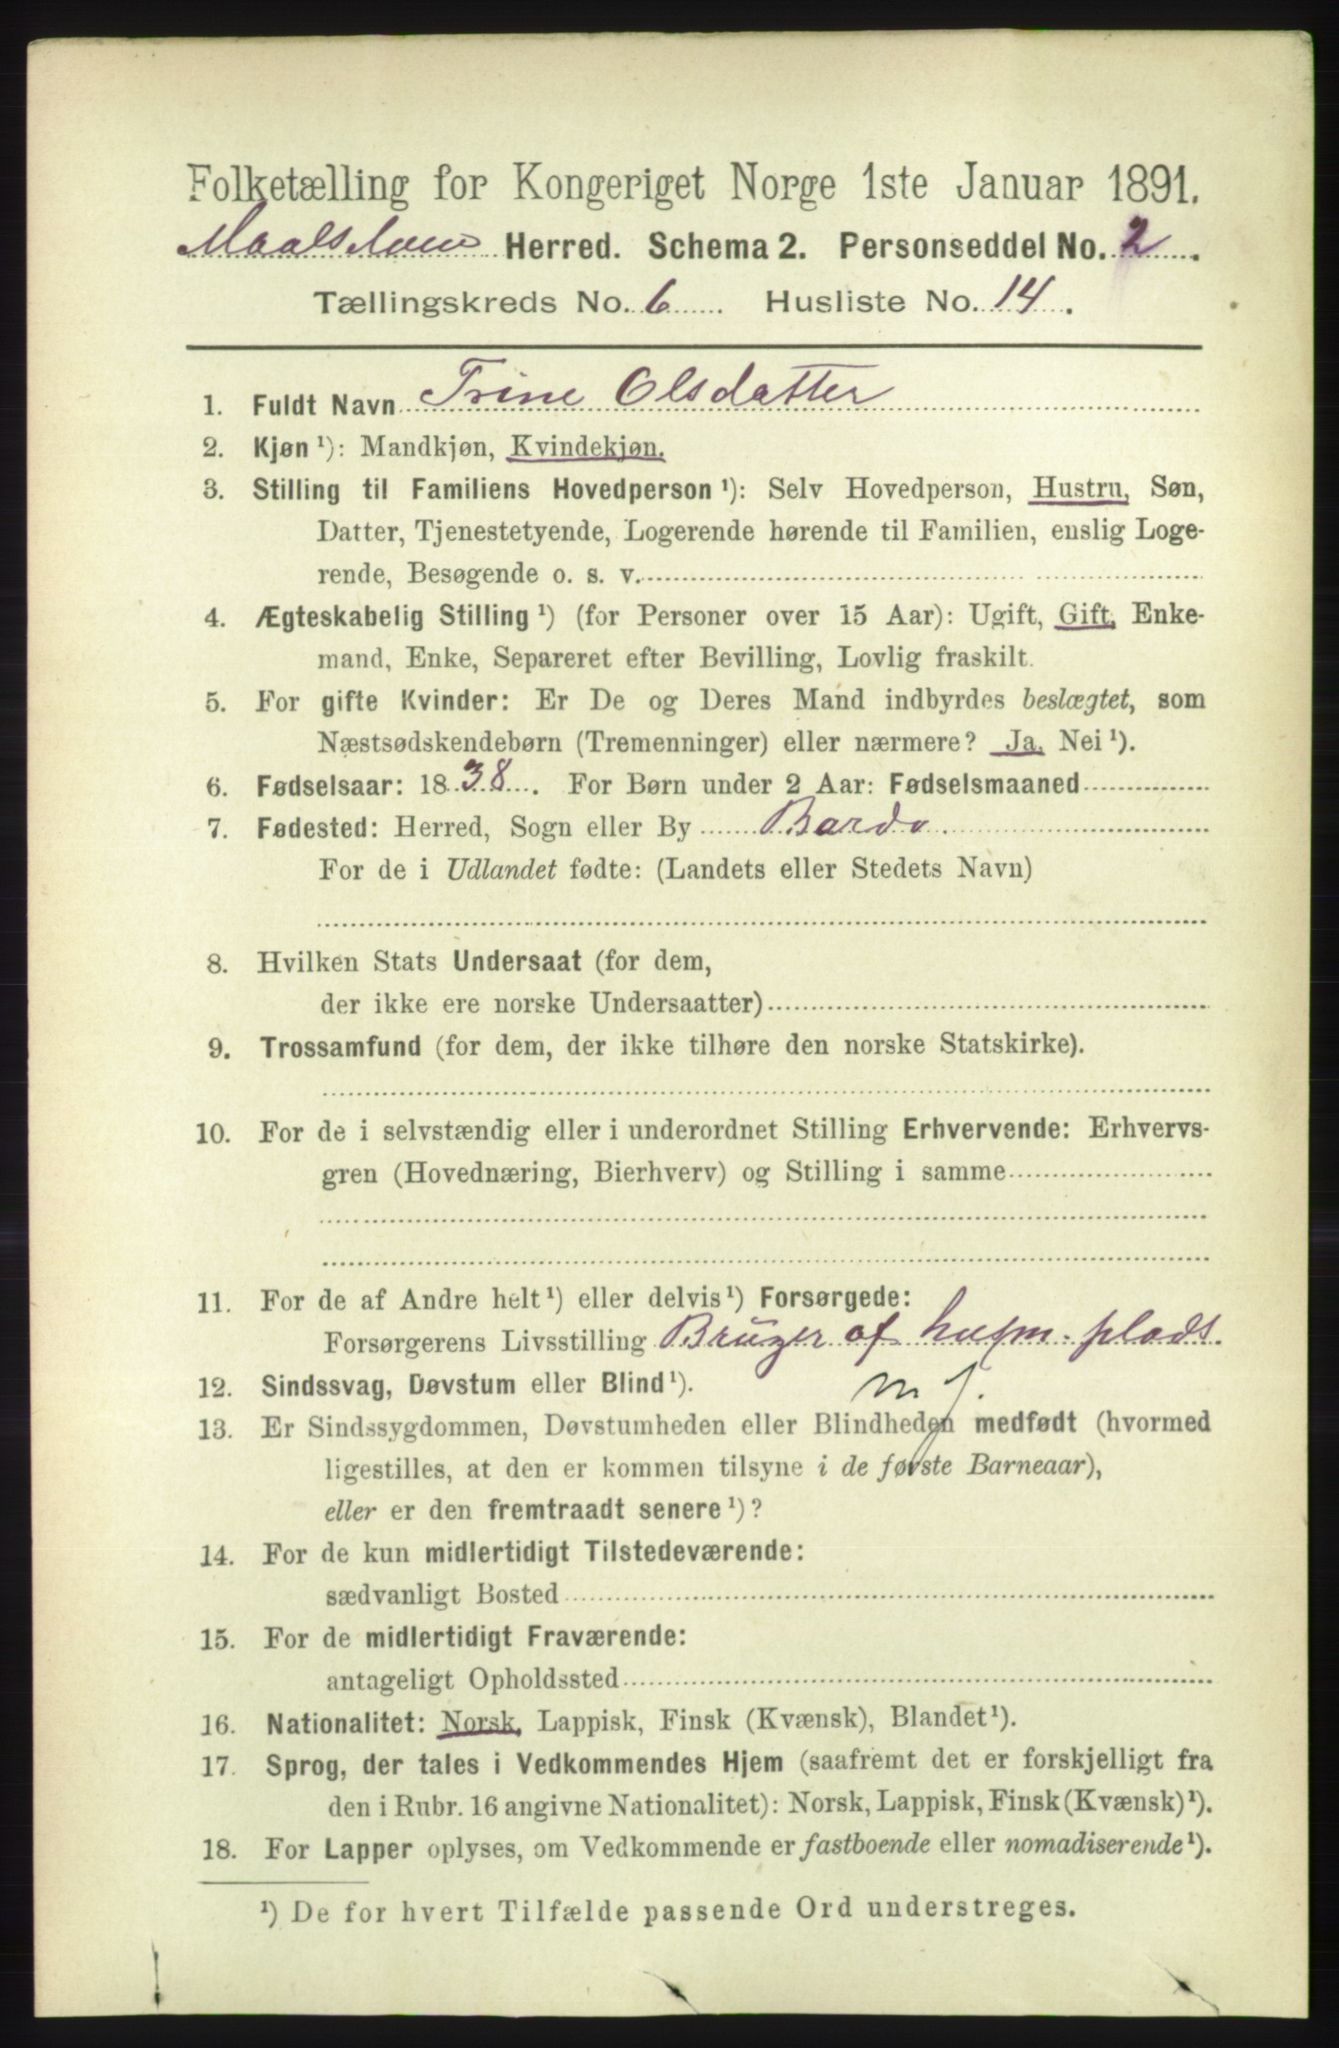 Folketælling for Kongeriget Norge 1ste Januar 1891.
Maalselven Herred. Schema 2. Personseddel No. 2.
Tællingskreds No. 6 Husliste No. 14.
1. Fuldt Navn Trine Olsdatter
2. Kjøn ¹): Mandkjøn, Kvindekjøn.
3. Stilling til Familiens Hovedperson ¹): Selv Hovedperson, Hustru, Søn,
Datter, Tjenestetyende, Logerende hørende til Familien, enslig Loge-
rende, Besøgende o. s. v.
4. Ægteskabelig Stilling ¹) (for Personer over 15 Aar): Ugift, Gift, Enke-
mand, Enke, Separeret efter Bevilling, Lovlig fraskilt.
5. For gifte Kvinder: Er De og Deres Mand indbyrdes beslægtet, som
Næstsødskendebørn (Tremenninger) eller nærmere? Ja, Nei ¹).
6. Fødselsaar: 1838. For Børn under 2 Aar: Fødselsmaaned
7. Fødested: Herred, Sogn eller By Bardo.
For de i Udlandet fødte: (Landets eller Stedets Navn)
8. Hvilken Stats Undersaat (for dem,
der ikke ere norske Undersaatter)
9. Trossamfund (for dem, der ikke tilhøre den norske Statskirke).
10. For de i selvstændig eller i underordnet Stilling Erhvervende: Erhvervs-
gren (Hovednæring, Bierhverv) og Stilling i samme
11. For de af Andre helt ¹) eller delvis ¹) Forsørgede:
Forsørgerens Livsstilling Brüger af husm. plads.
12. Sindssvag, Døvstum eller Blind ¹). m j.
13. Er Sindssygdommen, Døvstumheden eller Blindheden medfødt (hvormed
ligestilles, at den er kommen tilsyne i de første Barneaar),
eller er den fremtraadt senere ¹)?
14. For de kun midlertidigt Tilstedeværende:
sædvanligt Bosted
15. For de midlertidigt Fraværende:
antageligt Opholdssted
16. Nationalitet: Norsk, Lappisk, Finsk (Kvænsk), Blandet ¹).
17. Sprog, der tales i Vedkommendes Hjem (saafremt det er forskjelligt fra
den i Rubr. 16 angivne Nationalitet): Norsk, Lappisk, Finsk (Kvænsk) ¹).
18. For Lapper oplyses, om Vedkommende er fastboende eller nomadiserende ¹).
¹) De for hvert Tilfælde passende Ord understreges.